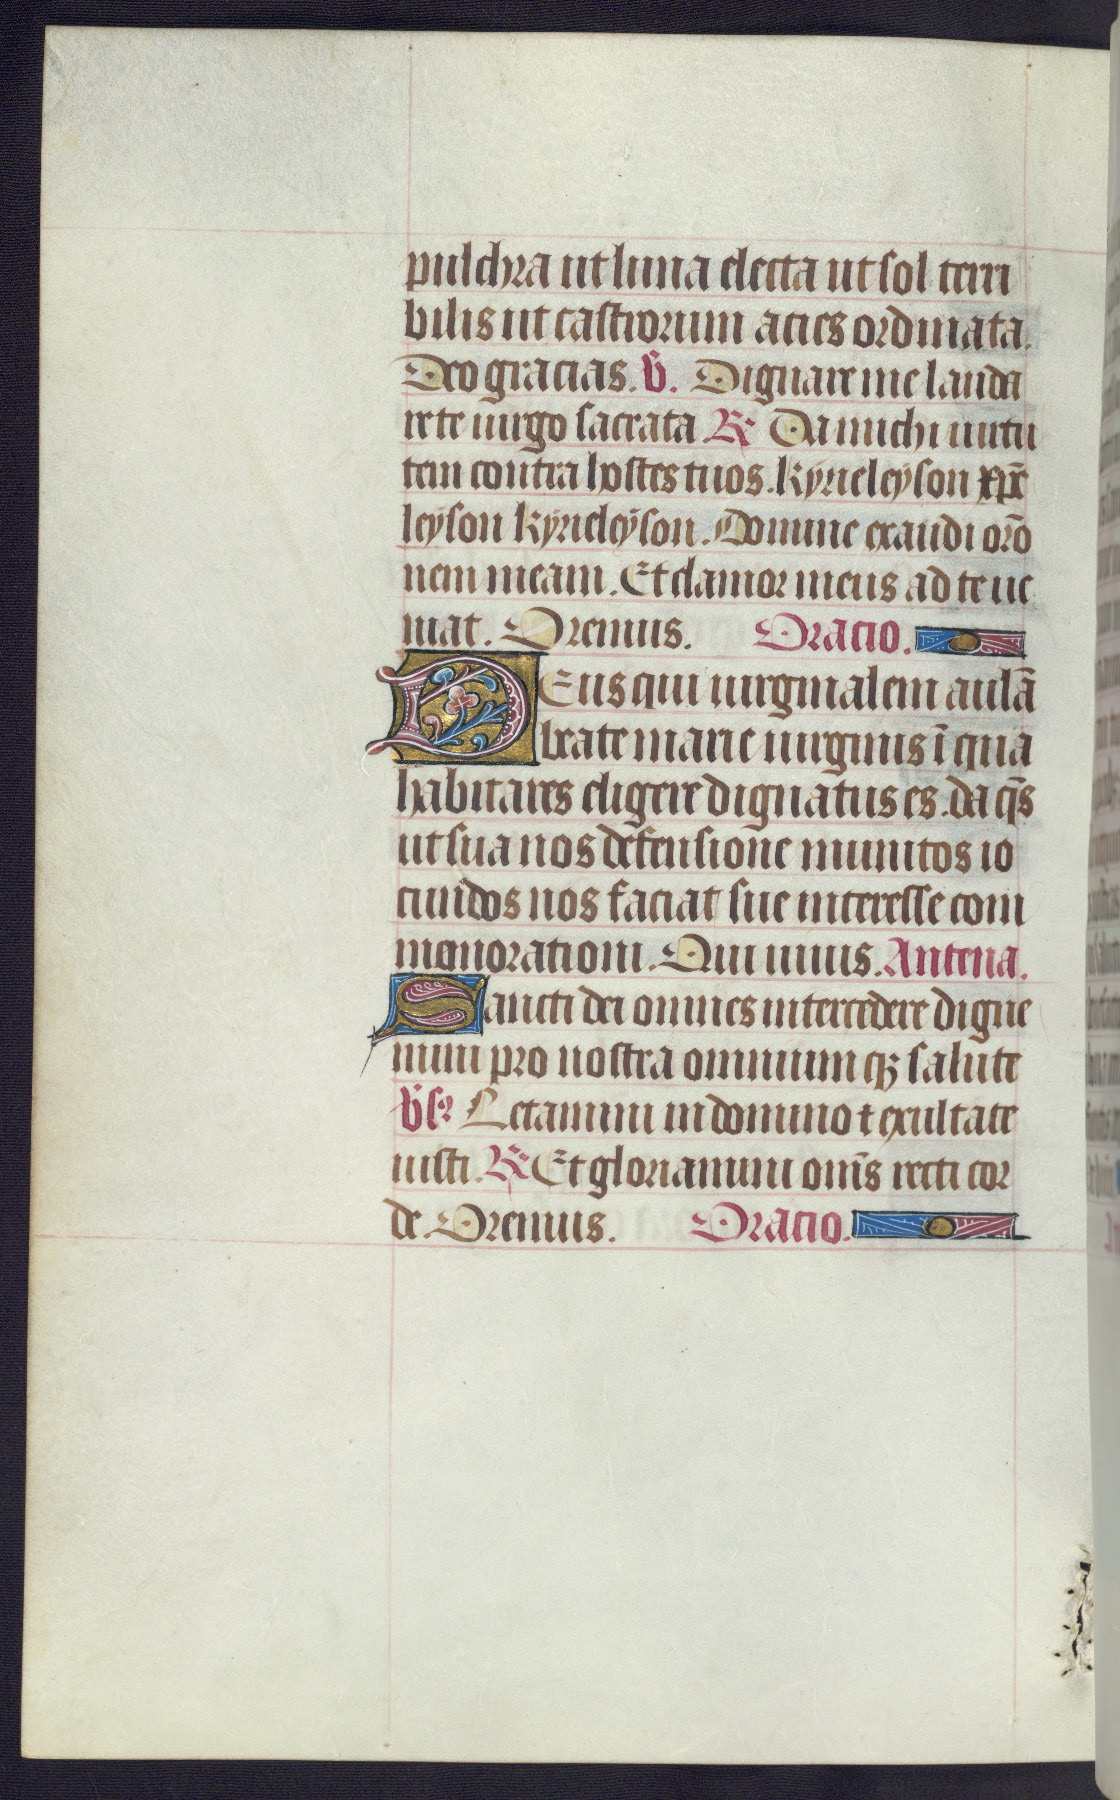 pulchra ut luna electa ut sol terri
bilis ut castrorum acies ordinata.
Deo gracias. V. Dignare me lauda
re te uirgo sacrata R Da michi uirtu
tem contra hostes tuos. kyrieleyson xp̄e
leyson kyrieleyson. Domine exaudi or̄o
nem meam. Et clamor meus ad te ue
niat. Oremus. Oracio.
Deus qui uirginalem aulā
beate marie uirginis ī qua
habitares eligere dignatus es. da q̄s
ut sua nos defensione munitos io
cundos nos faciat sue interesse com
memorationi. Qui uiuis. Antena.
Sancti dei omnes intercedere digne
mini pro nostra omnium qꝫ salute
Vs Letamini in domino ⁊ exultate
iusti. R Et gloriamini om̄s recti cor
de. Oremus. Oracio.